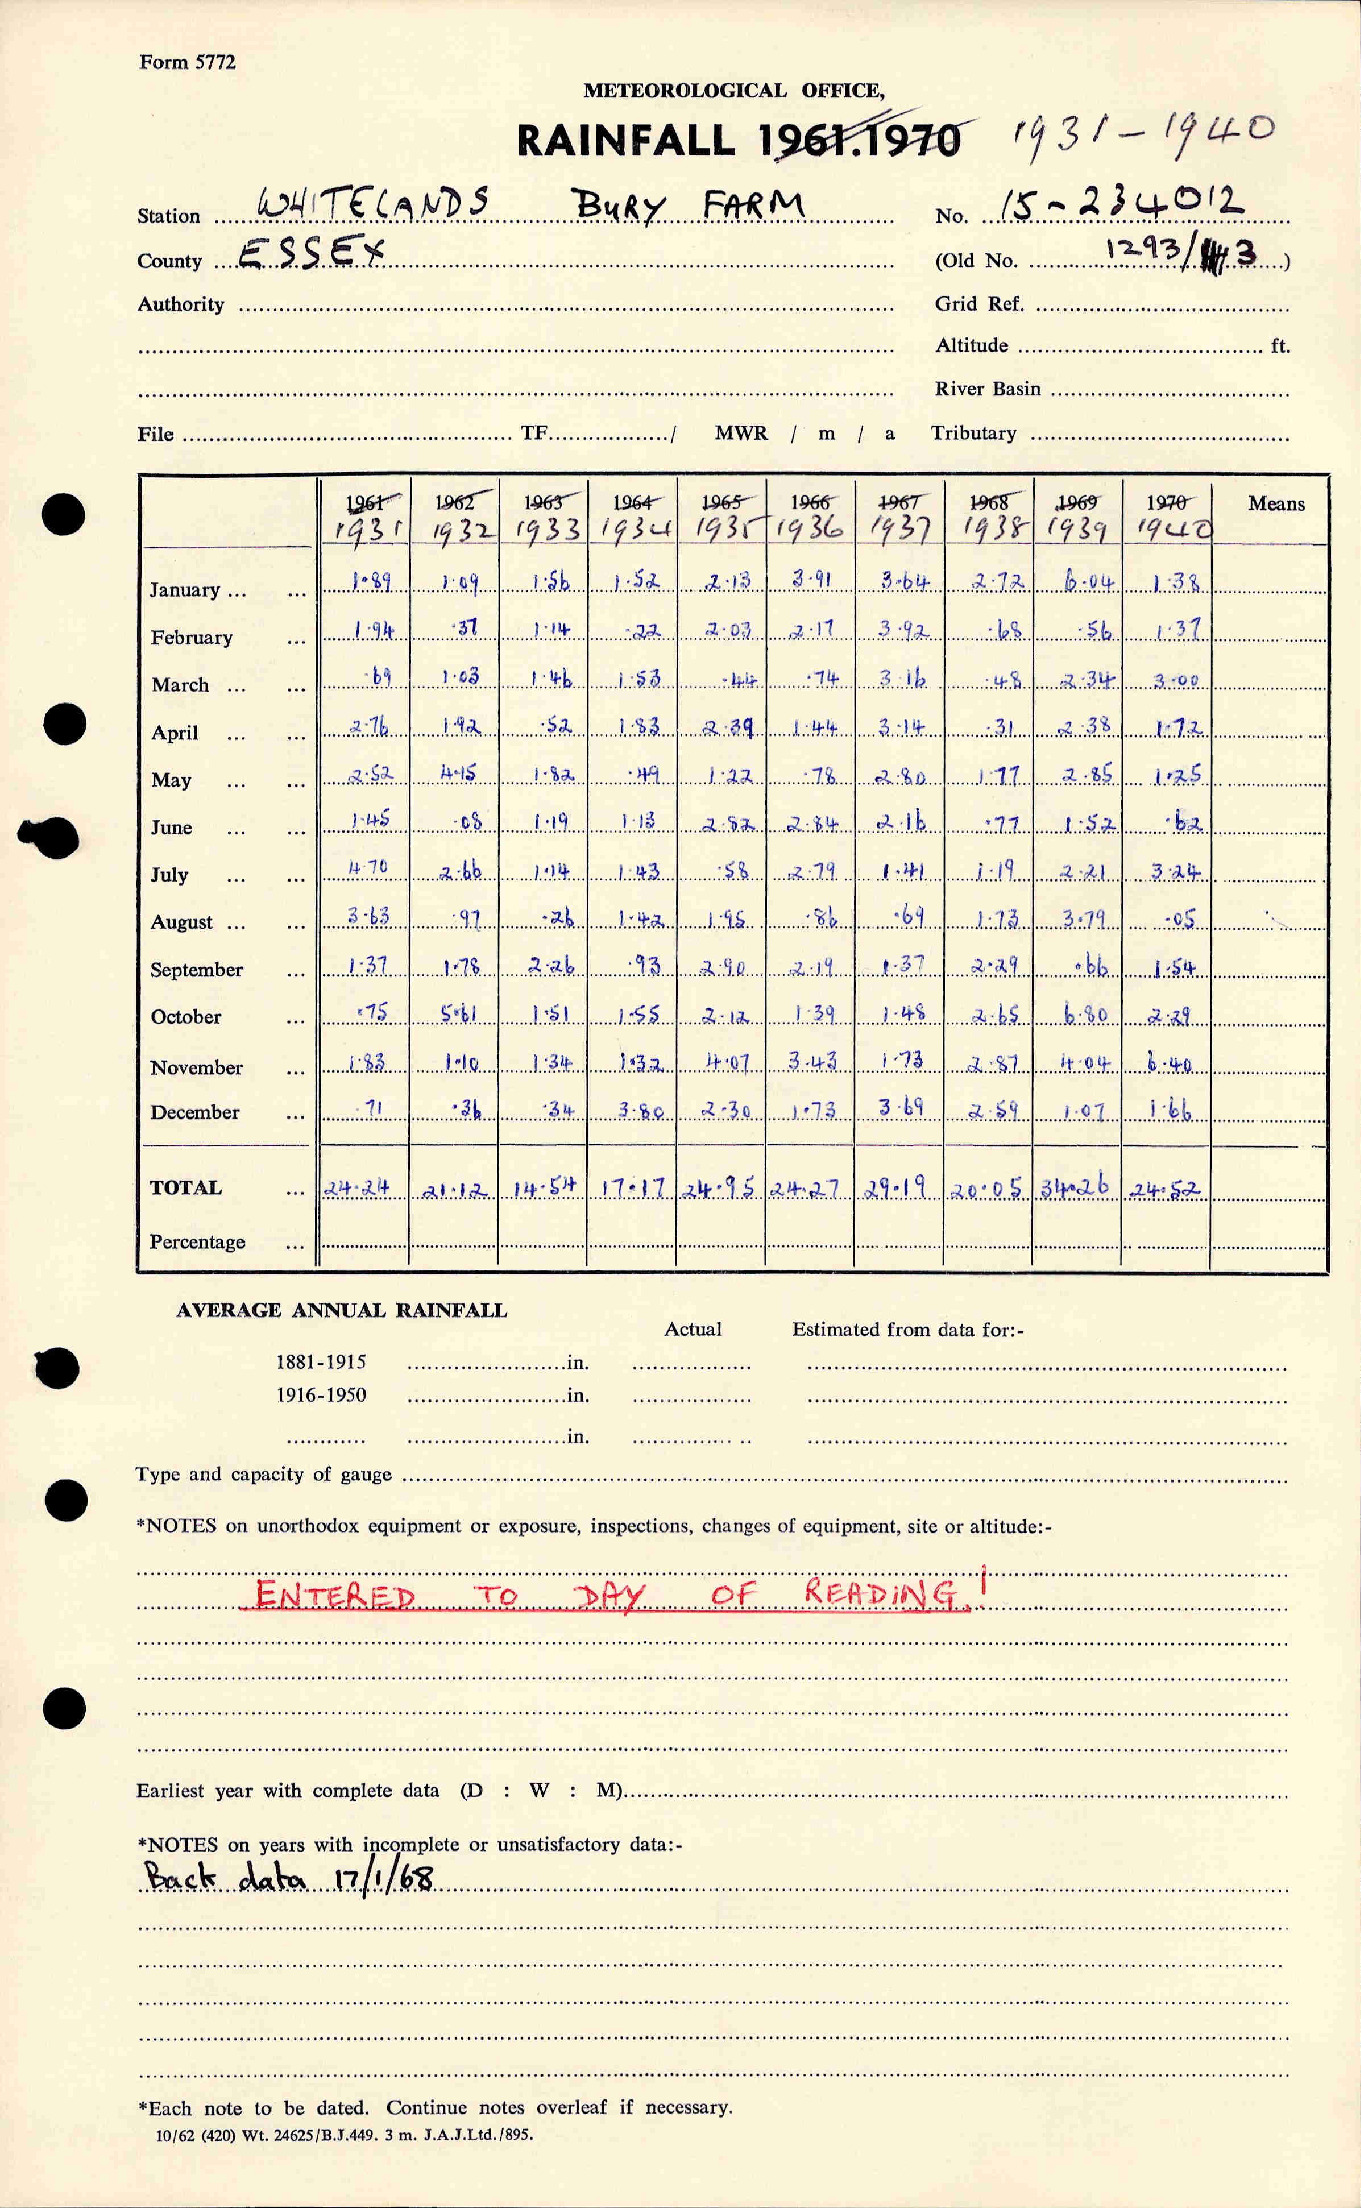 Form 5772
METEOROLOGICAL OFFICE,
RAINFALL 1961.1970 1931-1940
Station WHITELANDS BURY FARM No. 15-234012
County ESSEX (Old No. 1293/ 3)
Authority Grid Ref.
Altitude ft.
River Basin
File TF / MWR / m / a Tributary
1961 1962 1963 1964 1965 1966 1967 1968 1969 1970 Means
1931 1932 1933 1934 1935 1936 1937 1938 1939 1940
January ... ... 1.89 1.09 1.56 1.52 2.13 3.91 3.64 2.72 6.04 1.38
February ... 1.94 .37 1.14 .22 2.03 2.17 3.92 .68 .56 1.37
March ... ... .69 1.03 1.46 1.53 .44 .74 3.16 .48 2.34 3.00
April ... ... 2.76 1.92 .52 1.83 2.39 1.44 3.14 .31 2.38 1.72
May ... ... 2.52 4.15 1.82 .49 1.22 .78 2.80 1.77 2.85 1.25
June ... ... 1.45 .08 1.19 1.13 2.82 2.84 2.16 .77 1.52 .62
July ... ... 4.70 2.66 1.14 1.43 .58 2.79 1.41 1.19 2.21 3.24
August ... ... 3.63 .97 .26 1.42 1.95 .86 .69 1.73 3.79 .05
September ... 1.37 1.78 2.26 .93 2.90 2.19 1.37 2.29 .66 1.54
October ... .75 5.61 1.51 1.55 2.12 1.39 1.48 2.65 6.80 2.29
November ... 1.83 1.10 1.34 1.32 4.07 3.43 1.73 2.87 4.04 6.40
December ... .71 .36 .34 3.80 2.30 1.73 3.69 2.59 1.07 1.66
TOTAL ... 24.24 21.12 14.54 17.17 24.95 24.27 29.19 20.05 34.26 24.52
Percentage ...
AVERAGE ANNUAL RAINFALL
Actual Estimated from data for:-
1881-1915 in.
1916-1950 in.
in.
Type and capacity of gauge
*NOTES on unorthodox equipment or exposure, inspections, changes of equipment, site or altitude:-
ENTERED TO DAY OF READING.!
Earliest year with complete data (D : W : M)
*NOTES on years with incomplete or unsatisfactory data:-
Back data 17/1/68
*Each note to be dated. Continue notes overleaf if necessary.
10/62 (420) Wt. 24625/B.J.449. 3 m. J.A.J.Ltd./895.